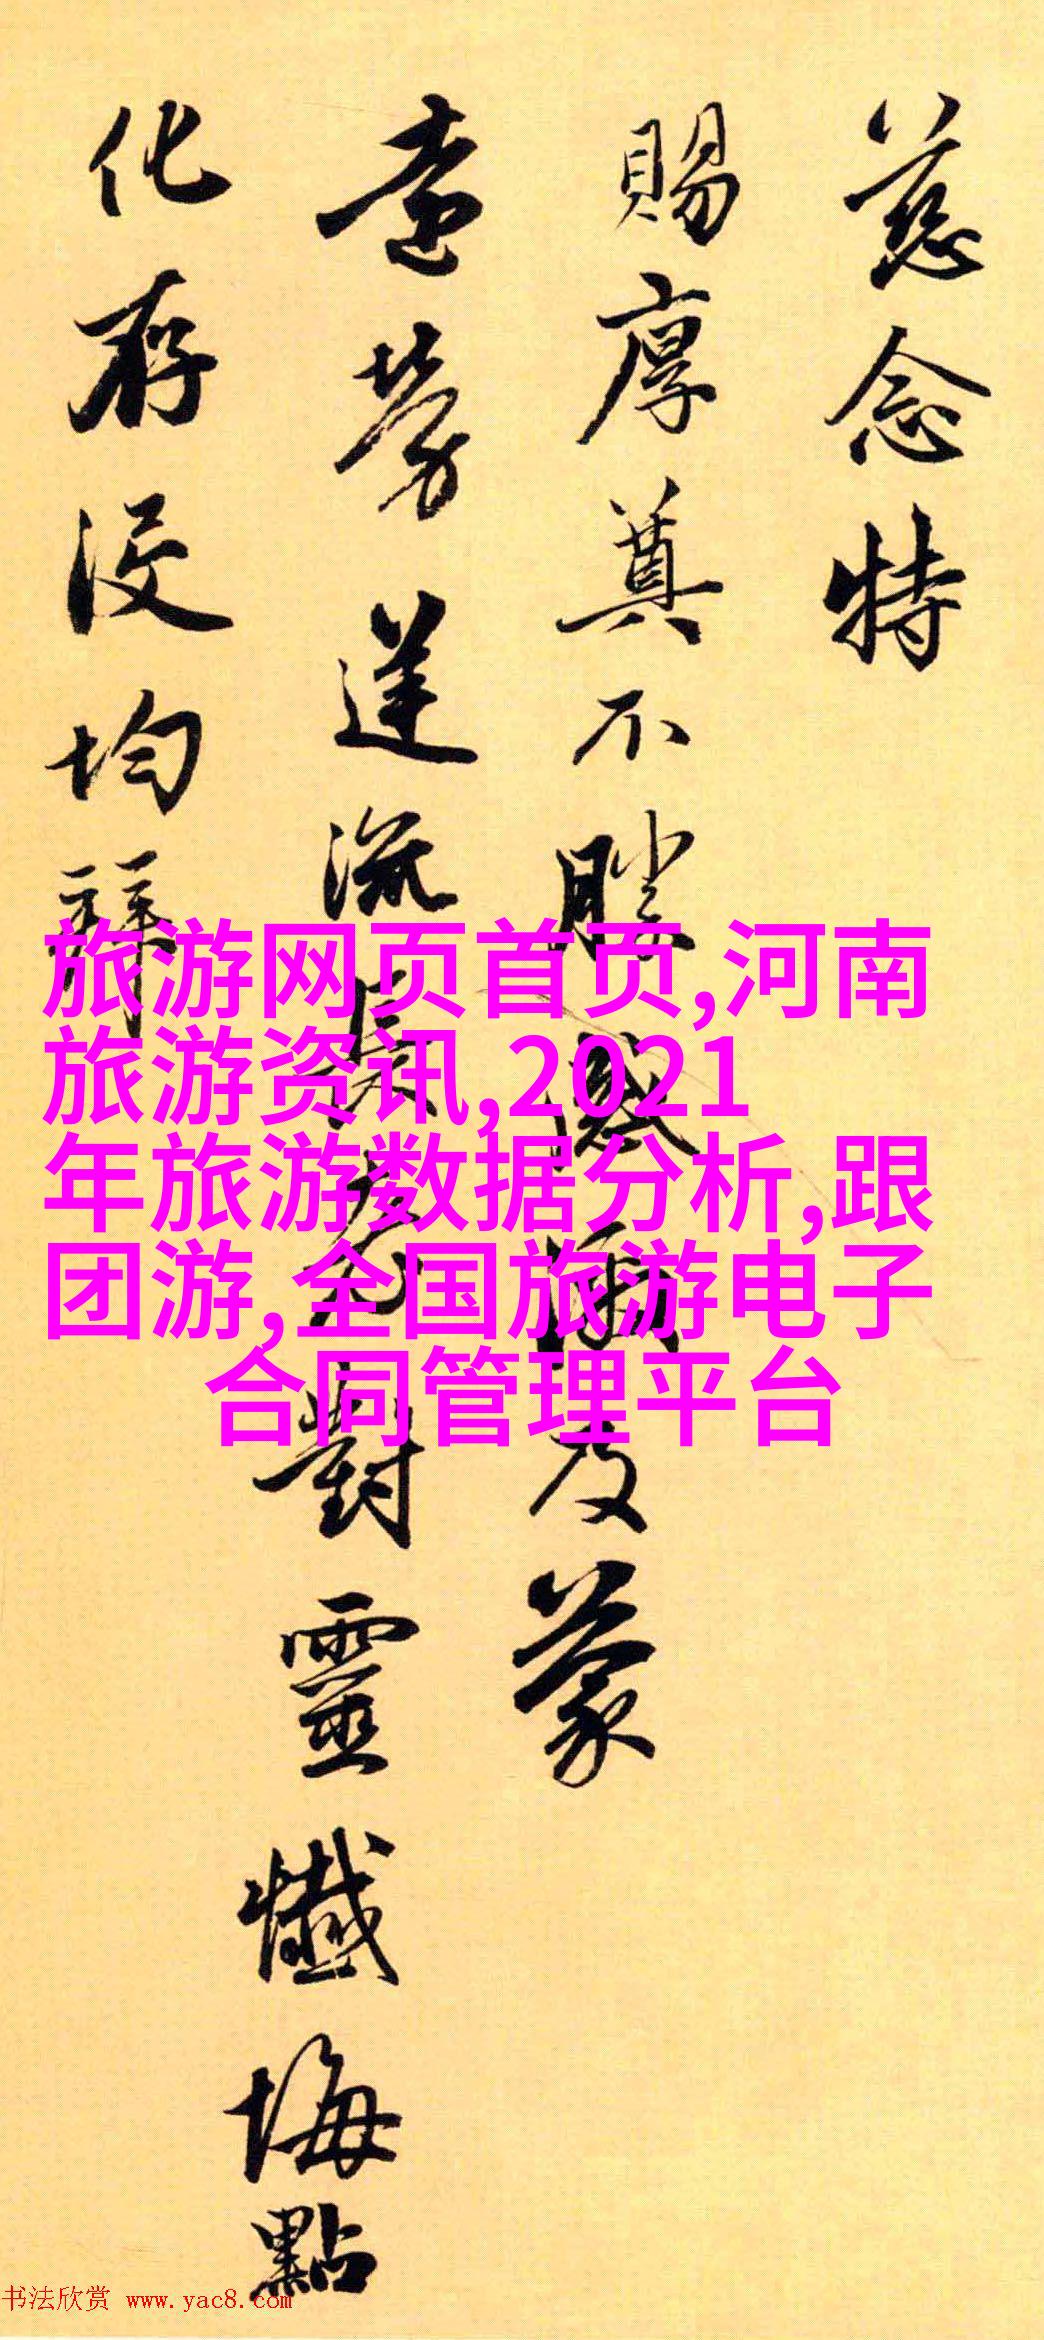 慈念特
賜厚奠不勝感激及蒙
遠勞蓬流長老對靈懺悔點
化存没均
旅游网页首页,河南
旅游资讯,2021
年旅游数据分析,跟
团游,全国旅游电子
合同管理平台
书法欣赏 www.yac8.com